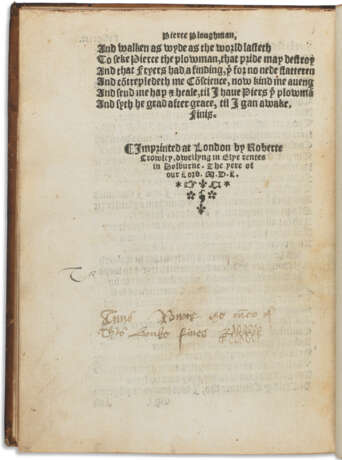 Pierce Ploughman,
And walken as wyde as the world lasteth
To seke Pierce the plowman, that pride may destroy
And that Fryers had a finding, ẏ for no nede flatteren
And cōtrepledeth me Cōscience, now kind me aueng
And send me hap & heale, til I haue Piers ẏ plowmā
And syth he grad after grace, til I gan awake.
Finis.
Imprinted at London by Roberte
Crowley, dwellyng in Elye rentes
in Holburne. The yere of
our Lord. M.D.L.